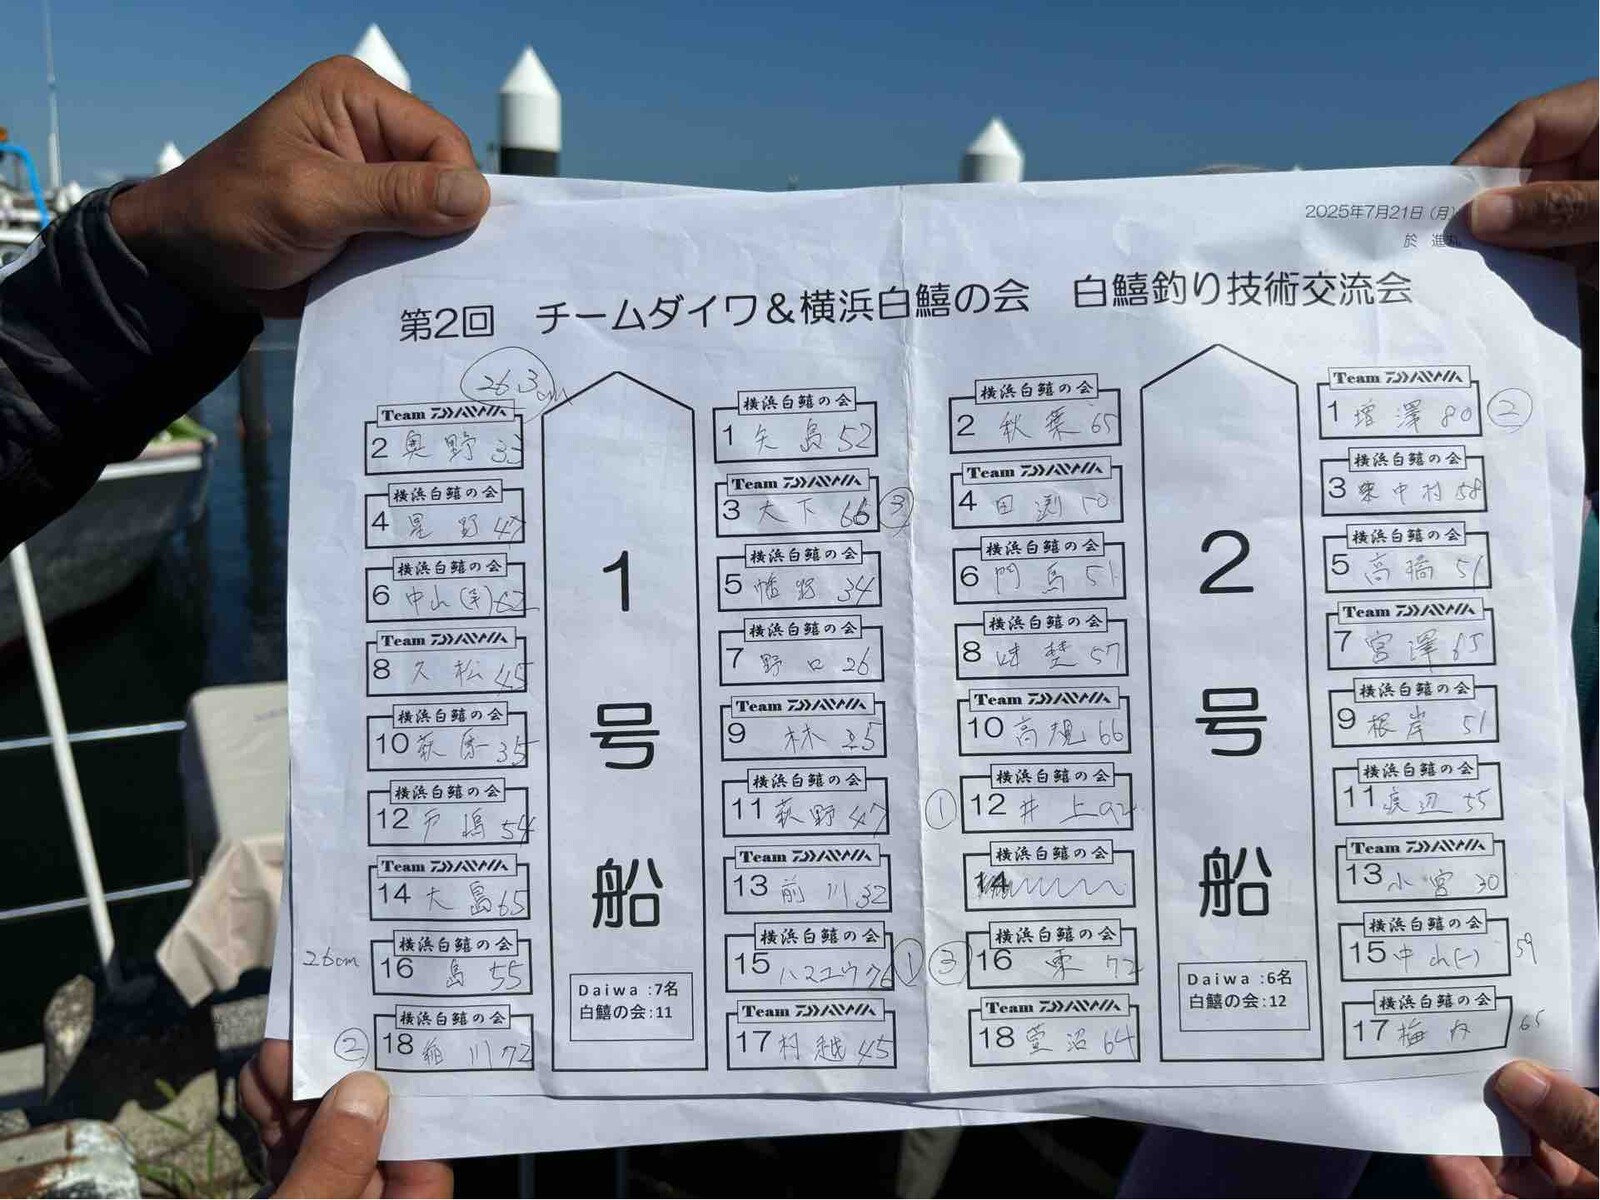 2025年7月21日（月）
於 進丸
第2回 チームダイワ＆横浜白鱚の会 白鱚釣り技術交流会
26.3cm
1号船
Team DAIWA
2 奥野 33
横浜白鱚の会
4 星野 47
横浜白鱚の会
6 中山(手) 62
Team DAIWA
8 久松 45
横浜白鱚の会
10 萩原 35
横浜白鱚の会
12 戸嶋 54
Team DAIWA
14 大島 65
横浜白鱚の会
26cm
16 島 55
横浜白鱚の会
② 18 稲川 72
横浜白鱚の会
1 矢島 52
Team DAIWA
3 大下 66 ③
横浜白鱚の会
5 幡野 34
横浜白鱚の会
7 野口 26
Team DAIWA
9 林
横浜白鱚の会
11 荻野 47
Team DAIWA
13 前川 32
横浜白鱚の会
15 ハスユウ 76 ①
Team DAIWA
17 村越 45
Daiwa :7名
白鱚の会:11
2号船
横浜白鱚の会
2 秋葉 65
Team DAIWA
4 田渕
横浜白鱚の会
6 門馬 51
横浜白鱚の会
8 味埜 57
Team DAIWA
10 高槻 66
横浜白鱚の会
① 12 井上 92
横浜白鱚の会
14
横浜白鱚の会
③ 16 栗 72
Team DAIWA
18 萱沼 64
Team DAIWA
1 増澤 80 ②
横浜白鱚の会
3 中村 58
横浜白鱚の会
5 高橋 51
Team DAIWA
7 宮澤 65
横浜白鱚の会
9 根岸 51
横浜白鱚の会
11 渡辺 55
Team DAIWA
13 小宮 30
横浜白鱚の会
15 中山(一) 59
横浜白鱚の会
17 梅内 65
Daiwa :6名
白鱚の会:12